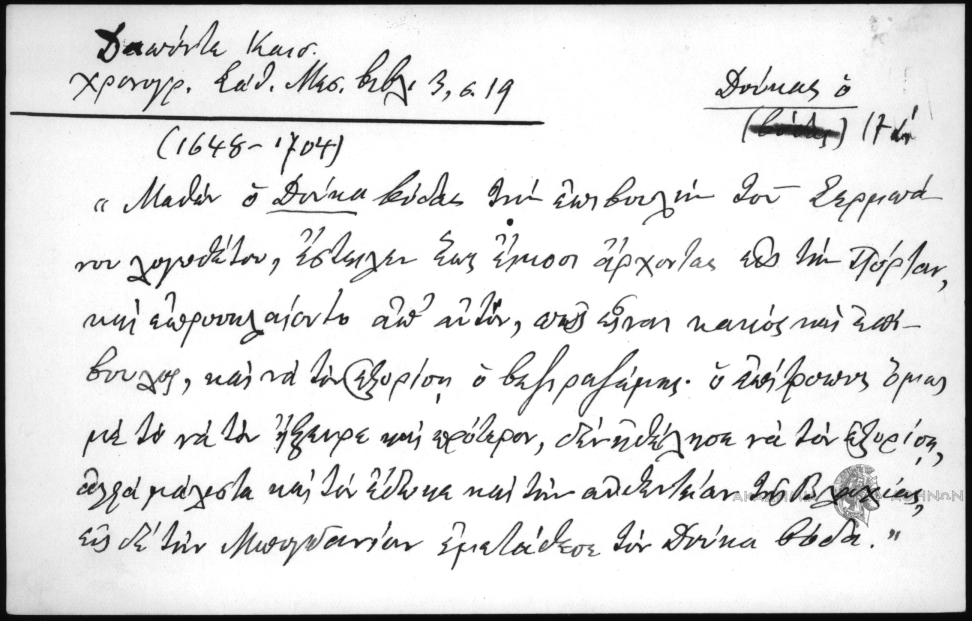 Δαπόντε Καισ.
χρονογρ. Σάθ. Μεσ. βιβλ. 3, σ. 19
Δούκας ὁ
(βόδας) 17
(1648-1704)
« Μαθὼν ὁ Δούκα βόδας τὴν ἐπιβουλὴν τοῦ Σερμπά
νου λογοθέτου, ἔστειλεν ἕως εἴκοσι ἄρχοντας εἰς τὴν Πόρταν,
καὶ ἐπροσκλαίοντο ἀπ' αὐτόν, πῶς εἶναι κακὸς καὶ ἐπί-
βουλος, καὶ νὰ τὸν ἐξορίσῃ ὁ βεζιραζέμης· ὁ ἐπίτροπος ὅμως
μὲ τὸ νὰ τὸν ἤξευρε καὶ πρότερον, δὲν ἠθέλησε νὰ τὸν ἐξορίσῃ,
ἀλλὰ μάλιστα καὶ τὸν ἔδωκε καὶ τὴν αὐθεντείαν τῆς Βλαχίας,
εἰς δὲ τὴν Μπογδανίαν ἐμετάθεσε τὸν Δούκα βόδα. »
ΑΚΑΔΗΜΙΑ ΑΘΗΝΩΝ